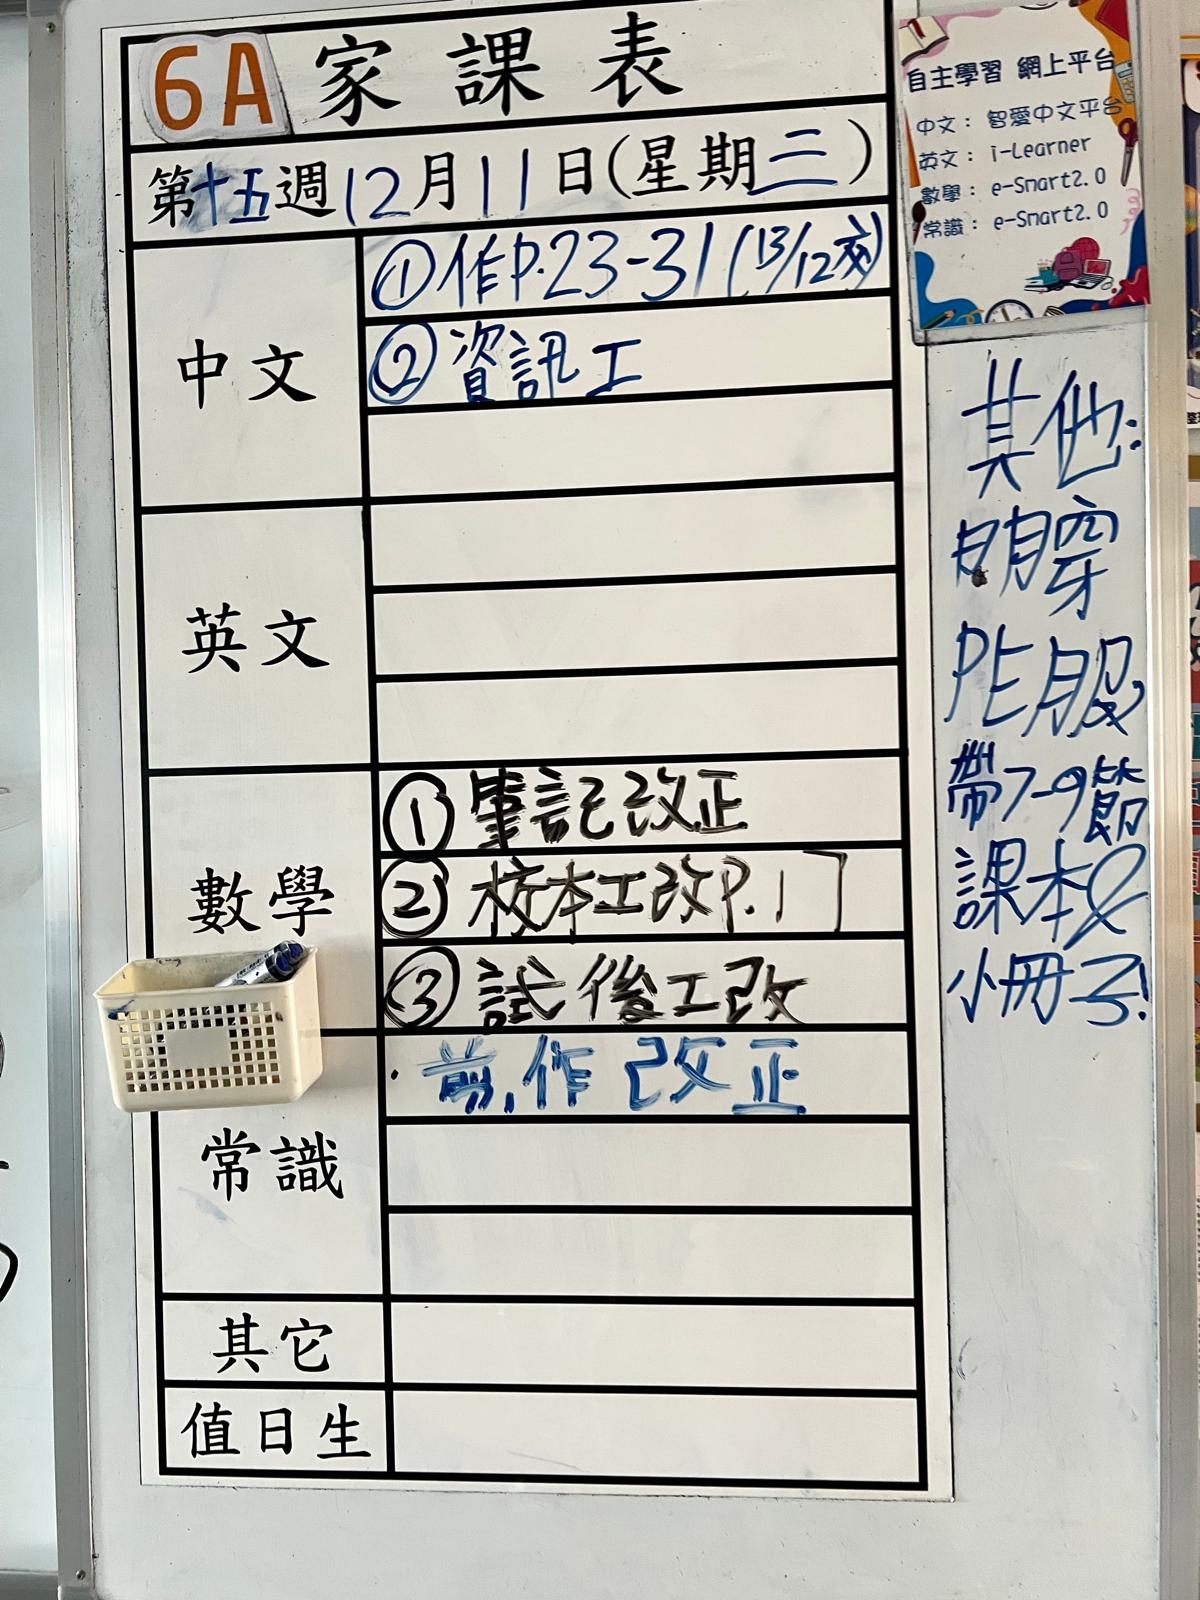 6A 家課表
第十五週12月11日(星期三)
中文
①作P.23-31(13/12交)
②資訊工
英文
數學
①筆記改正
②校本工改P.17
③試後工改
常識
·前.作改正
其它
值日生
自主學習 網上平台
中文：智愛中文平台
英文：i-Learner
數學：e-Smart2.0
常識：e-Smart2.0
其他:
明穿
PE服,
帶7-9節
課本&
小冊子!